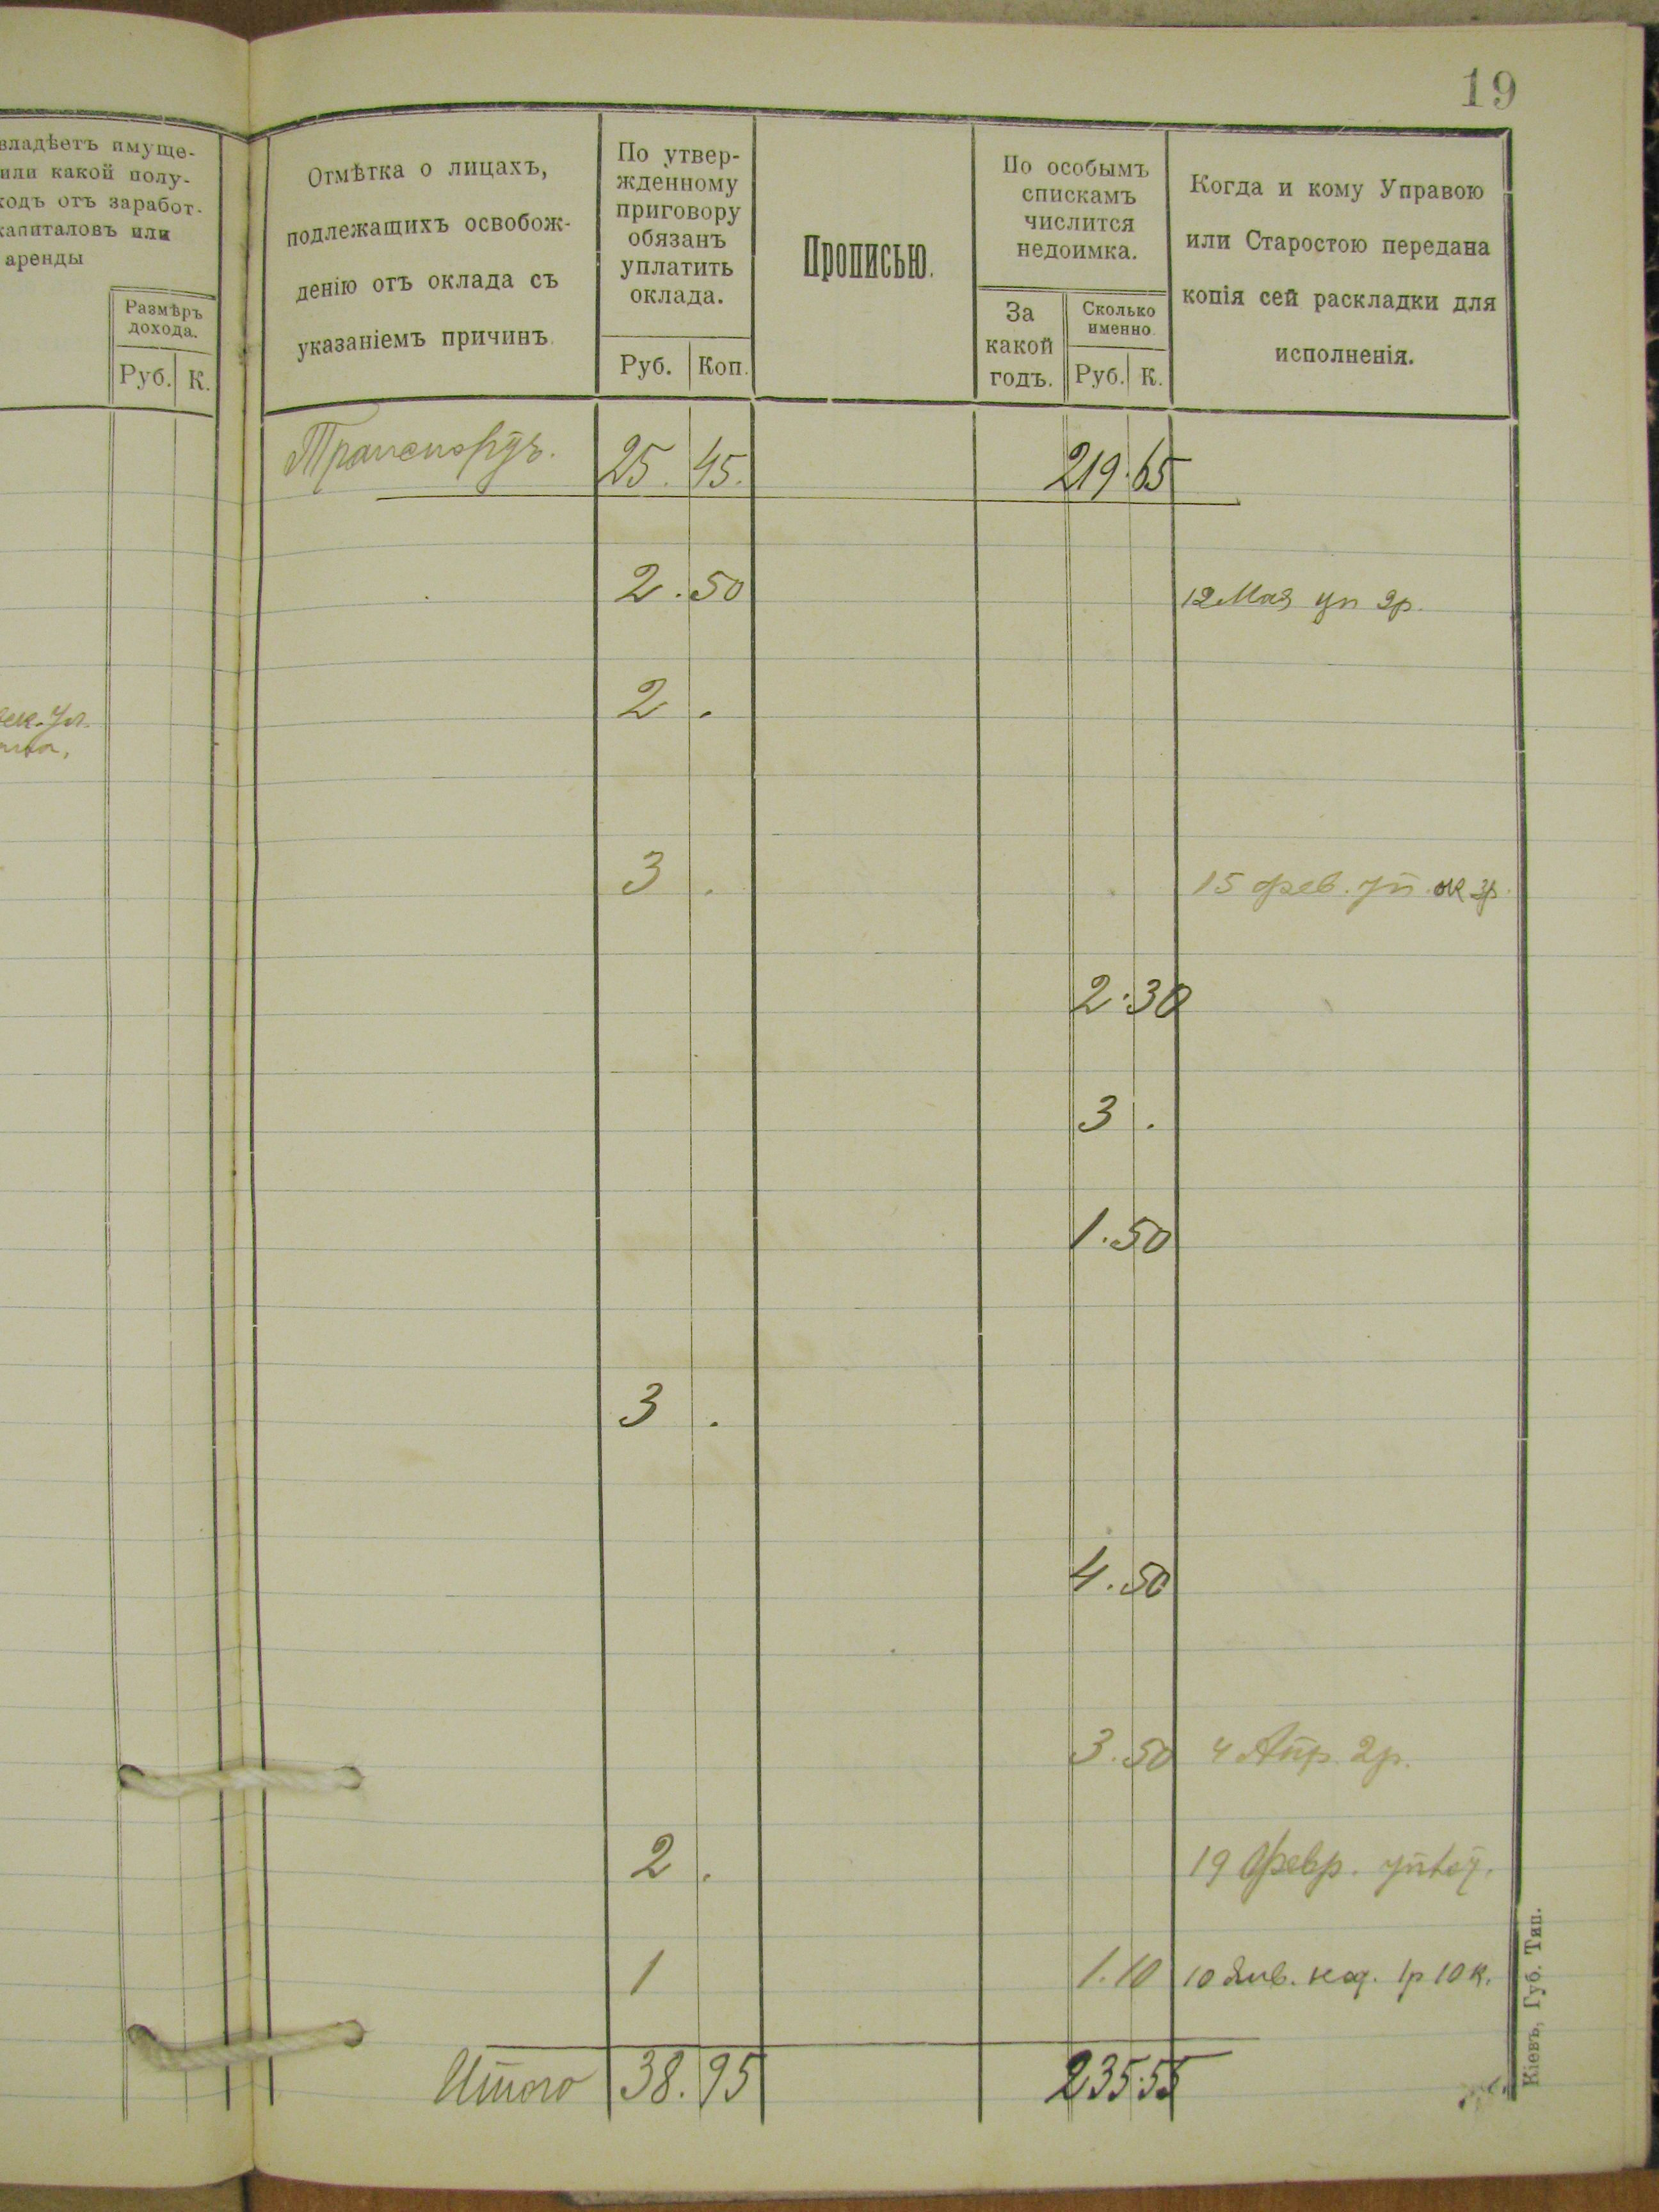 19
владѣетъ имуще-
или какой полу-
ходъ отъ заработ-
капиталовъ или
аренды
Размѣръ
дохода.
Руб. К.
Отмѣтка о лицахъ,
подлежащихъ освобож-
денію отъ оклада съ
указаніемъ причинъ.
По утвер-
жденному
приговору
обязанъ
уплатить
оклада.
Руб. Коп.
Прописью.
По особымъ
спискамъ
числится
недоимка.
За
какой
годъ.
Сколько
именно.
Руб. К.
Когда и кому Управою
или Старостою передана
копія сей раскладки для
исполненія.
Транспортъ. 25. 45. 219.65
2.50 12 Мая уп 2р.
2 .
3 . 15 фев. уп. ок 3р.
2.30
3 .
1.50
3 .
4.50
3.50 4 Апр. 2р.
2 . 19 Февр.
1 1.10 10 Янв. 1р 10 к.
Итого 38.95 235.55
Кіевъ, Губ. Тип.